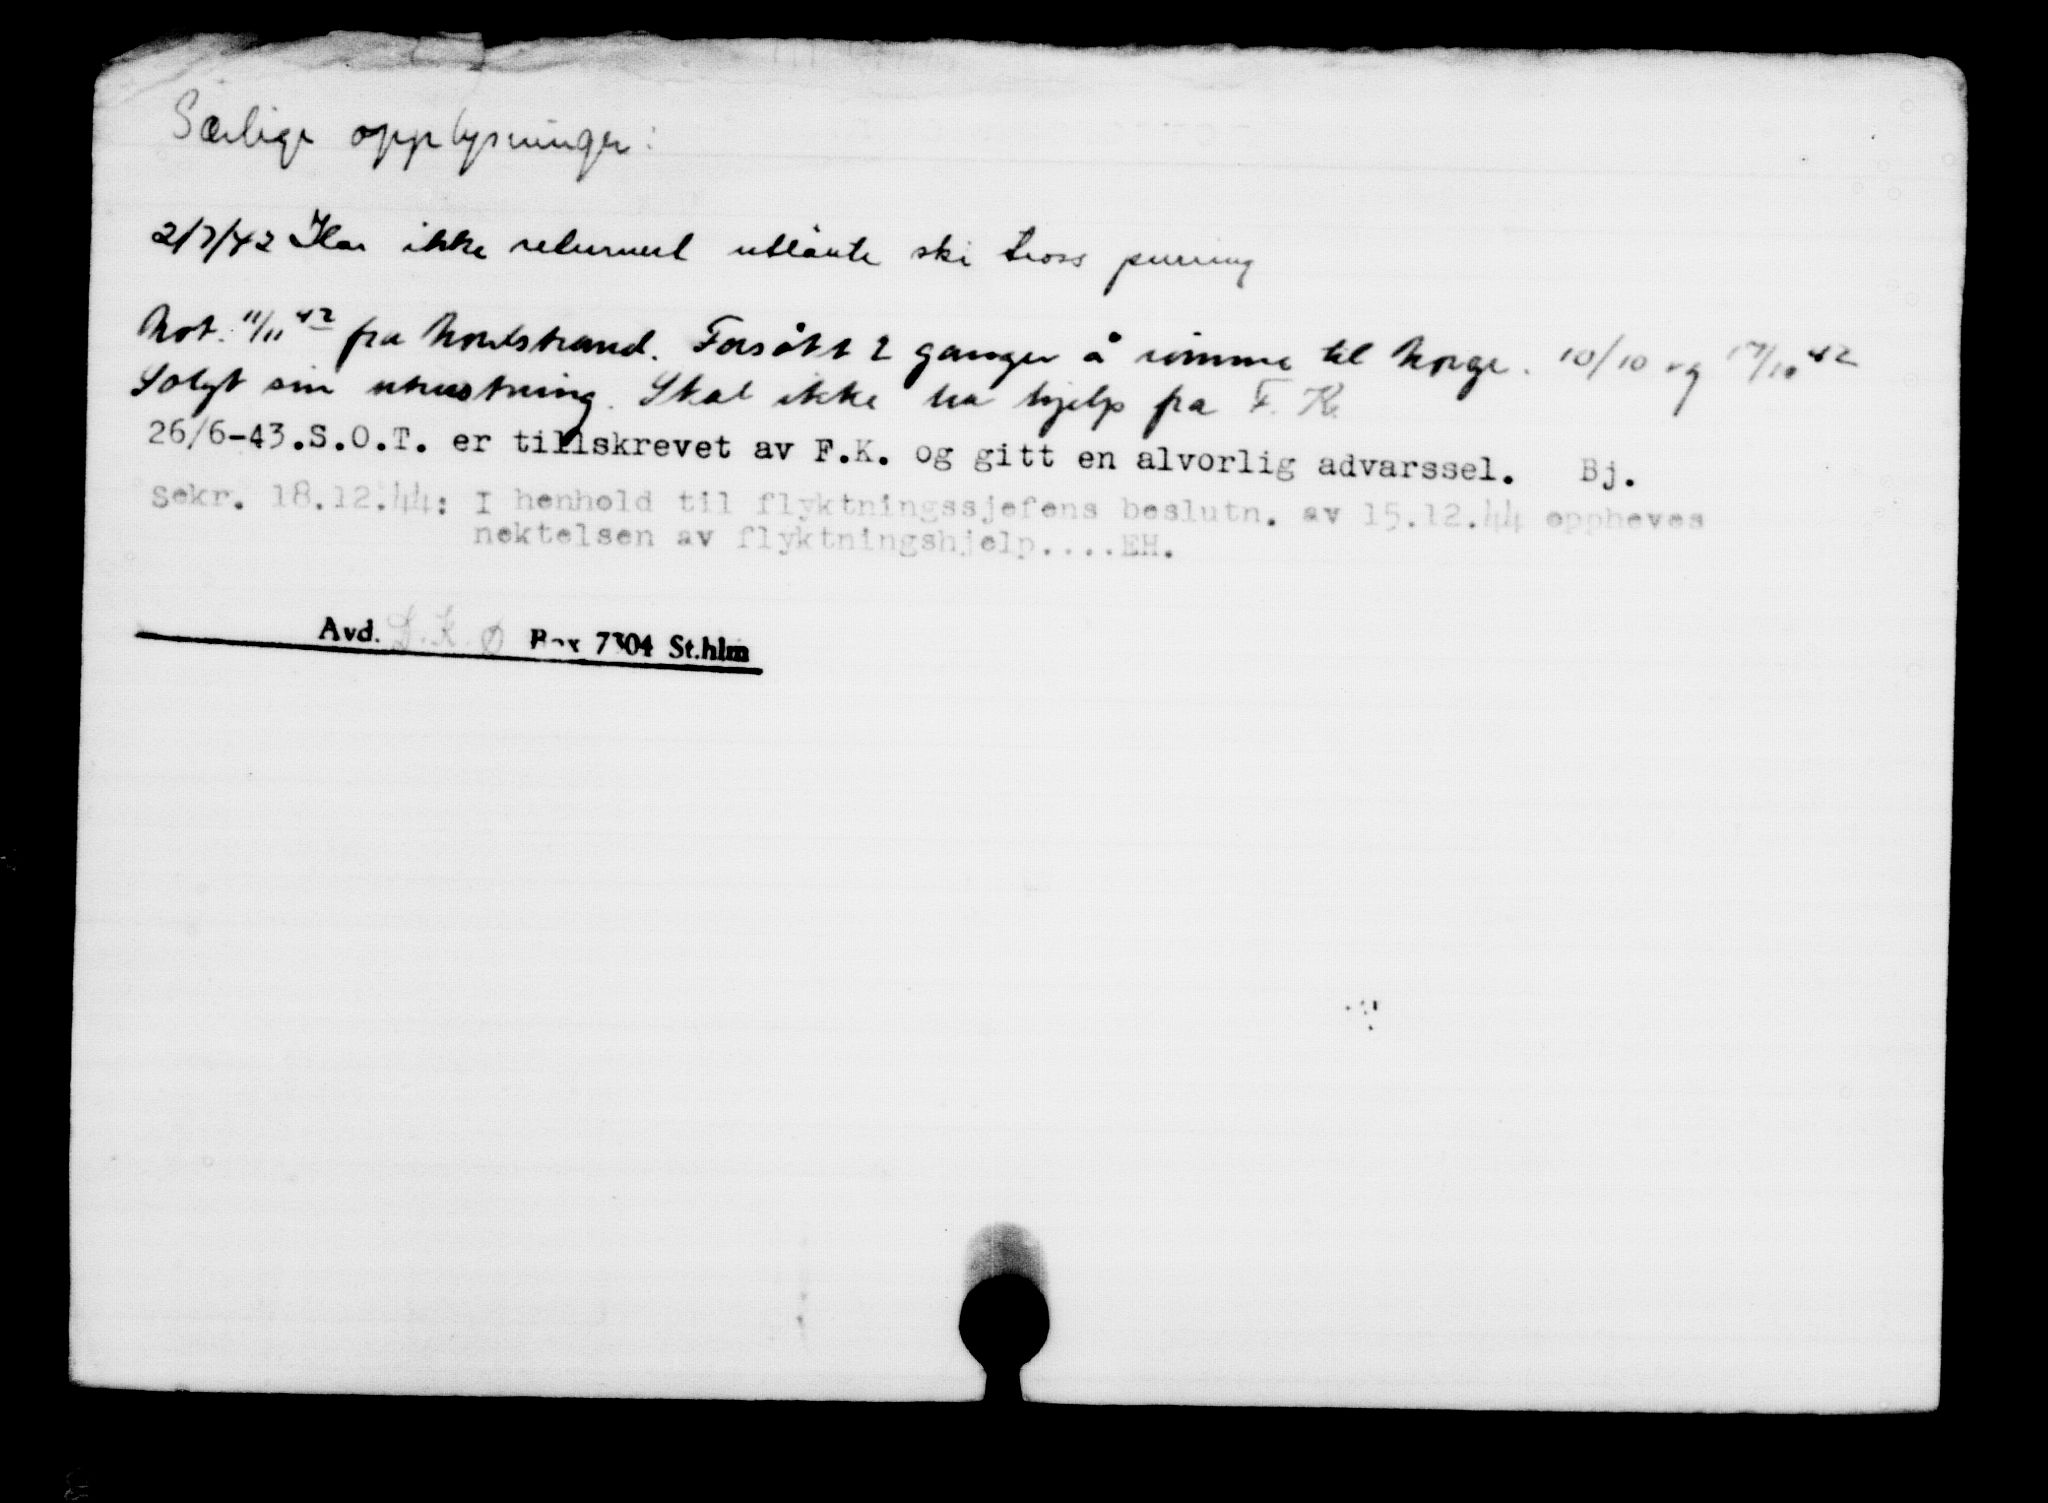 Særlige opplysninger:
2/7/42 Har ikke returnert utlånte ski tross purring
Not. 11/11 42 fra Nordstrand. Forsøkt 2 ganger å rømme til Norge. 10/10 og 17/10 42
Solgt sin utrustning. Skal ikke ha hjelp fra F. K.
26/6-43.S.O.T. er tillskrevet av F.K. og gitt en alvorlig advarssel. Bj.
Sekr. 18.12.44: I henhold til flyktningssjefens beslutn. av 15.12.44 oppheves
nektelsen av flyktningshjelp....EH.
Avd. D.K.Ø Box 7304 St.hlm